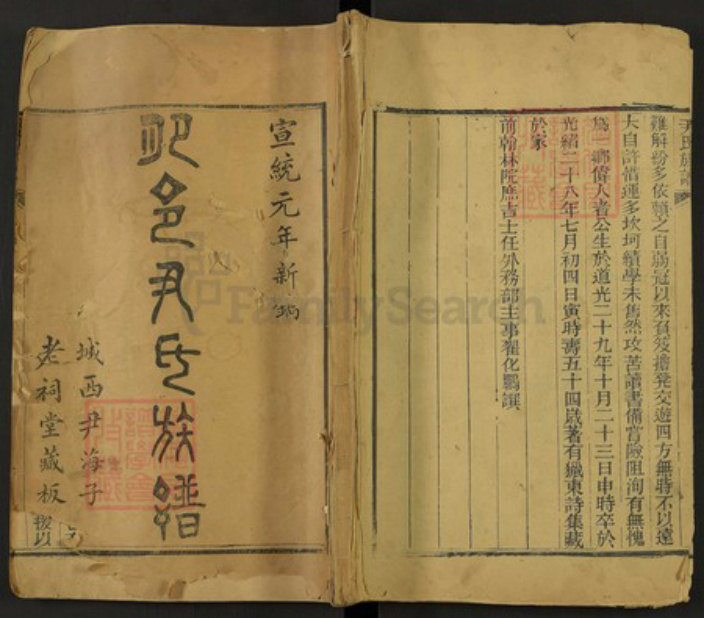 難解紛多依賴之自弱冠以來負笈擔凳交遊四方無時不以遠
大自許惜運多坎坷績學未售然攻苦讀書備嘗險阻洵有無愧
為一鄉偉人者公生於道光二十九年十月二十三日申時卒於
光緒二十八年七月初四日寅時壽五十四歲著有獵東詩集藏
於家
前翰林院庶吉士任外務部主事翟化鵬譔
尹氏族譜
宣統元年新編
邑尹氏族譜
城西尹海子
老祠堂藏板
FamilySearch